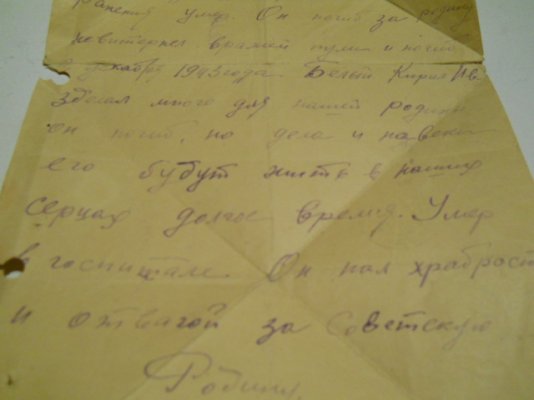 ранения умер. Он погиб за родину
вражей пули и погиб
декабря 1943 года. Белый Кирил Ив
зделал много для нашей родины
он погиб, но дела и навеки
его будут жить в наших
серцах долгое время. Умер
в госпитале. Он пал храброст
и отвагой за Советскую
Родину